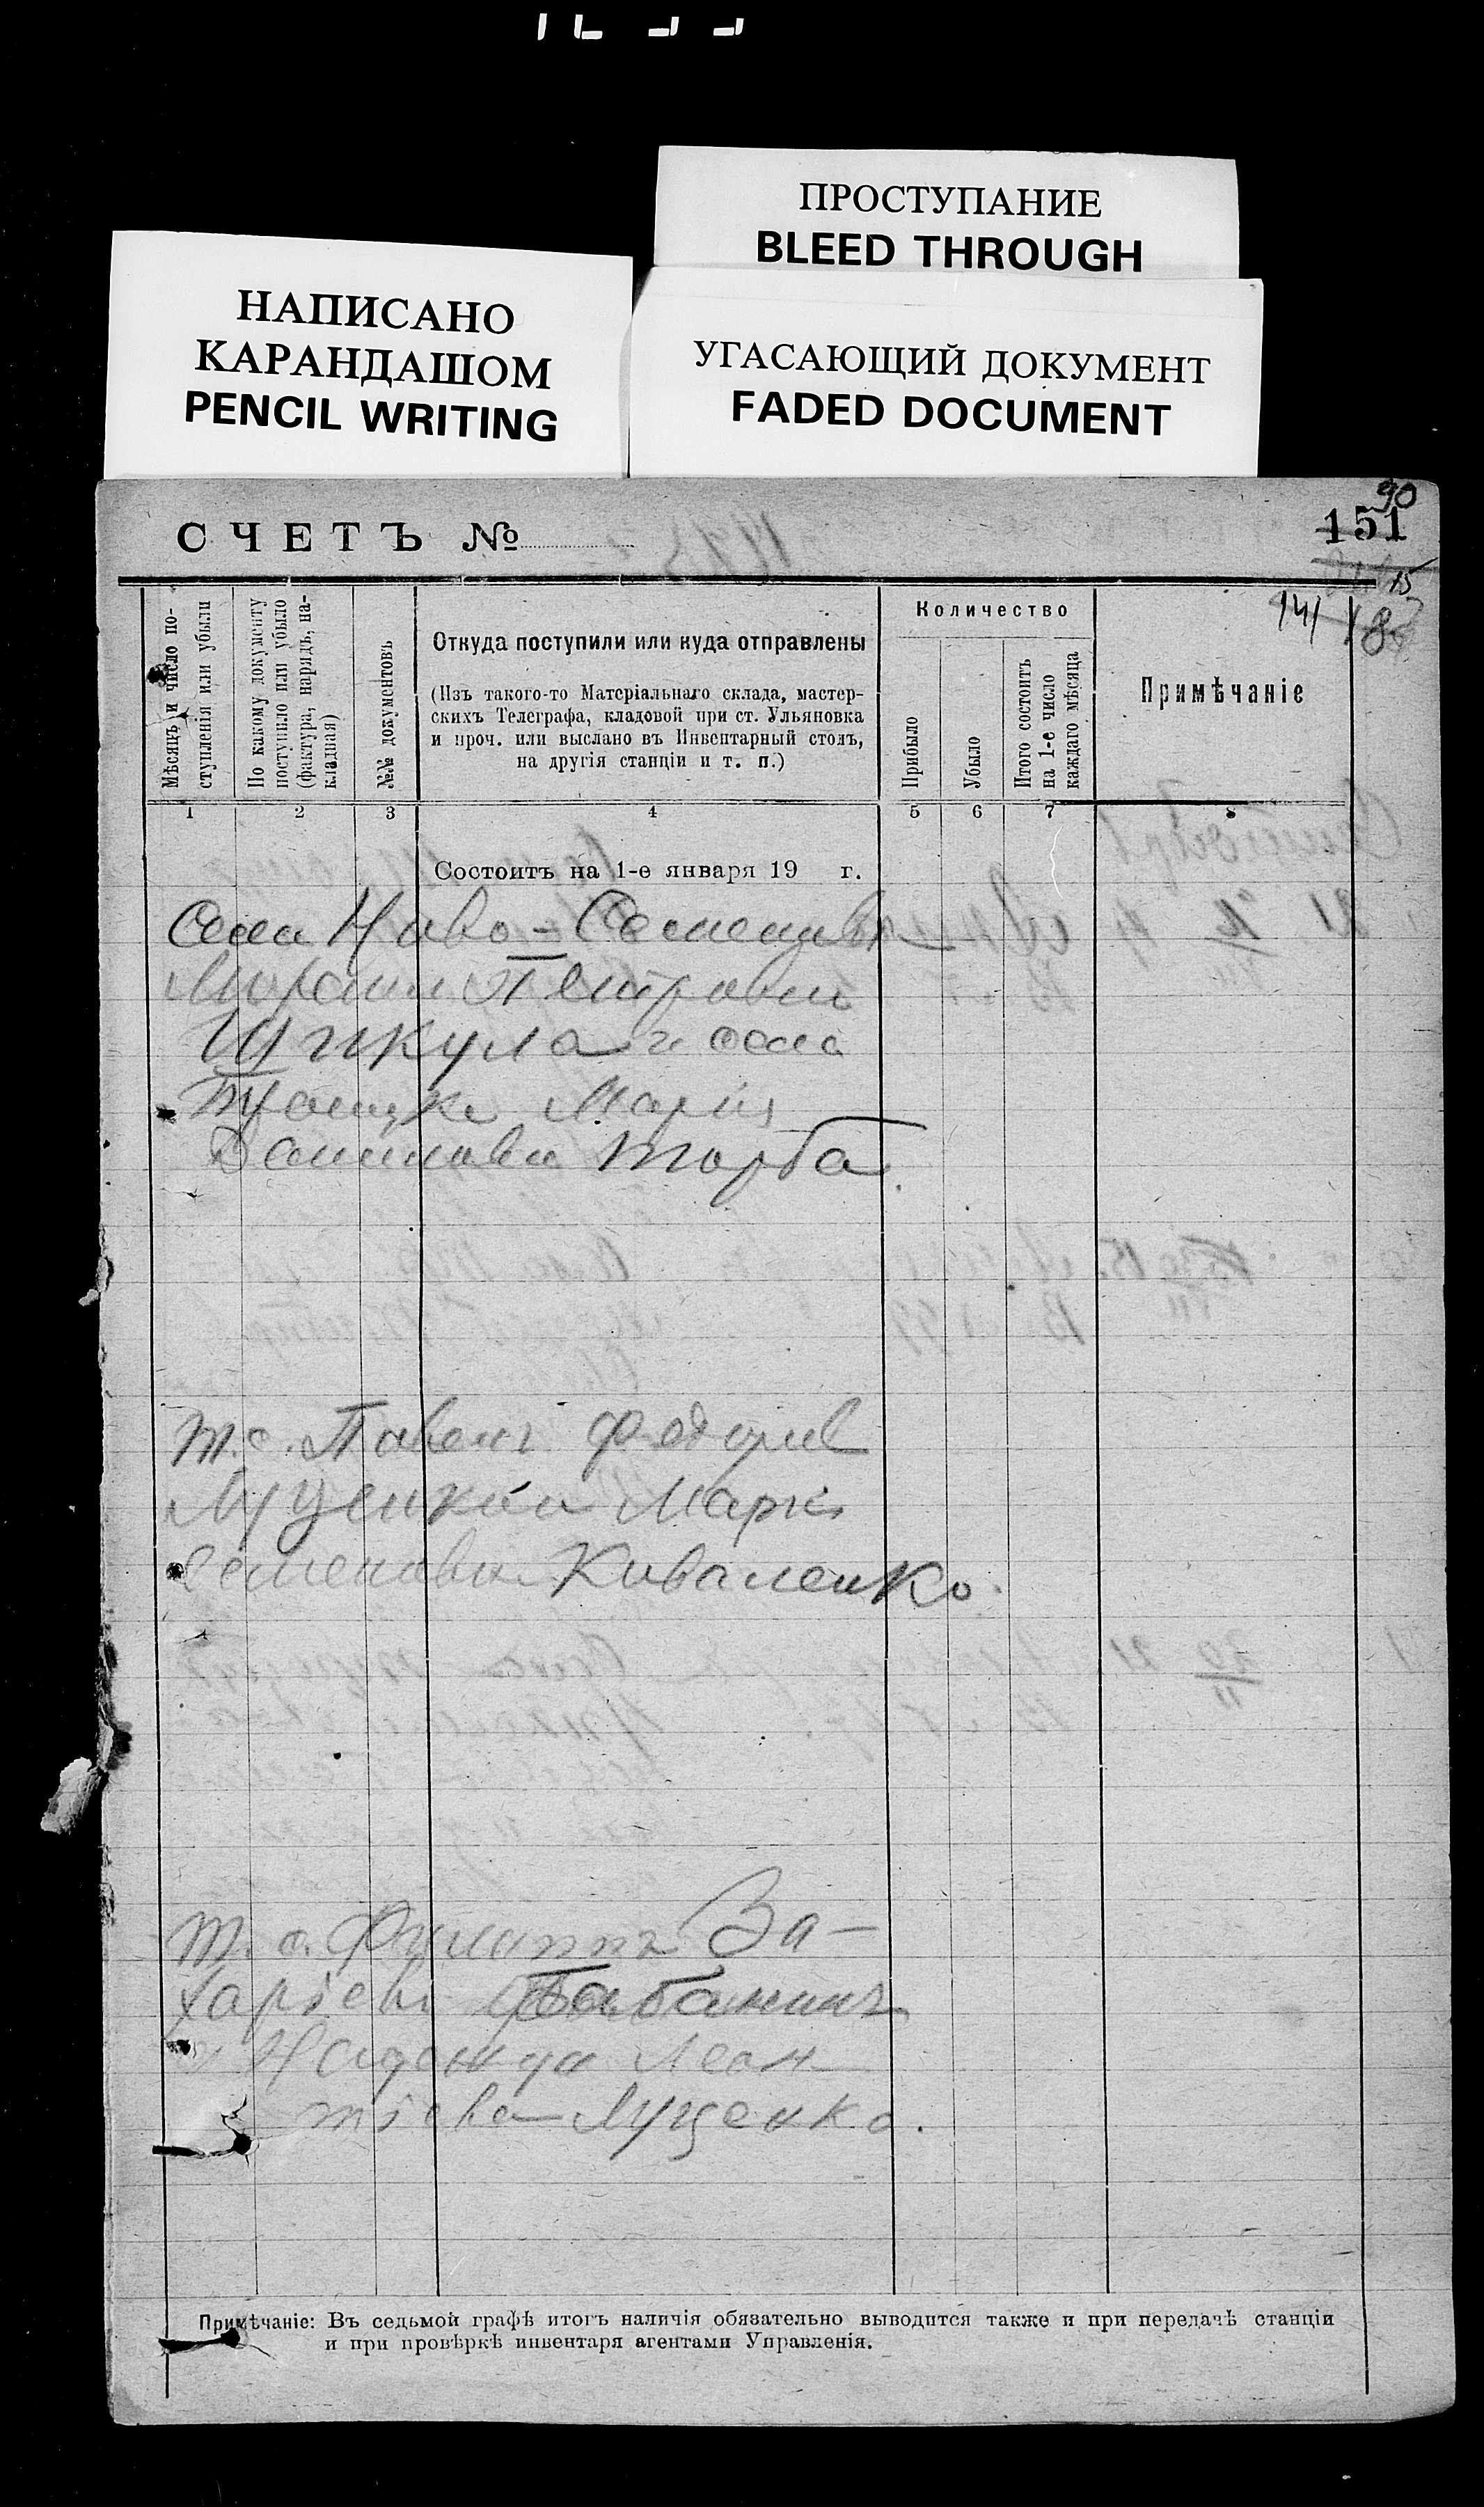 ПРОСТУПАНИЕ
BLEED THROUGH
НАПИСАНО
КАРАНДАШОМ
PENCIL WRITING
УГАСАЮЩИЙ ДОКУМЕНТ
FADED DOCUMENT
90
СЧЕТЪ №
151
15
141
Мѣсяцъ и число по-
ступленія или убыли
По какому документу
поступило или убыло
(фактура, нарядъ, на-
кладная)
№№ документовъ
Откуда поступили или куда отправлены
(Изъ такого-то Матеріальнаго склада, мастер-
скихъ Телеграфа, кладовой при ст. Ульяновка
и проч. или выслано въ Инвентарный столъ,
на другія станціи и т. п.)
Количество
Прибыло
Убыло
Итого состоитъ
на 1-е число
каждаго мѣсяца
Примѣчаніе
1 2 3 4 5 6 7 8
Состоитъ на 1-е января 19 г.
села Ново-
Петровы
и села
Марія
Данилова Торба.
т.с. Павелъ Федоров
Луценко и Марія
Семеновна Коваленко.
т.с. Филиппъ За-
харіевъ Бабанинъ
и Надежда Леон
тіева Луценко.
Примѣчаніе: Въ седьмой графѣ итогъ наличія обязательно выводится также и при передачѣ станціи
и при провѣркѣ инвентаря агентами Управленія.